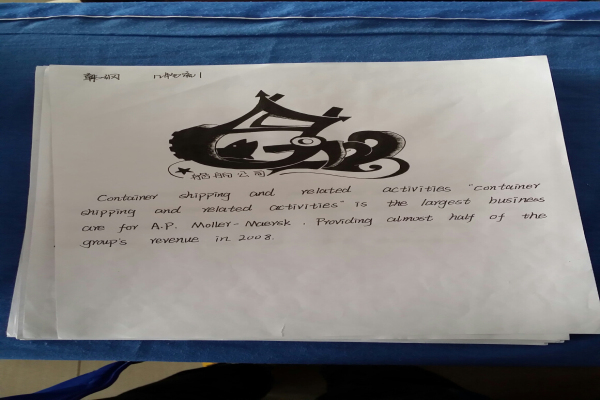 船舶公司
Container shipping and related activities "container
shipping and related activities" is the largest business
are for A.P. Moller-Maersk. Providing almost half of the
group's revenue in 2008.